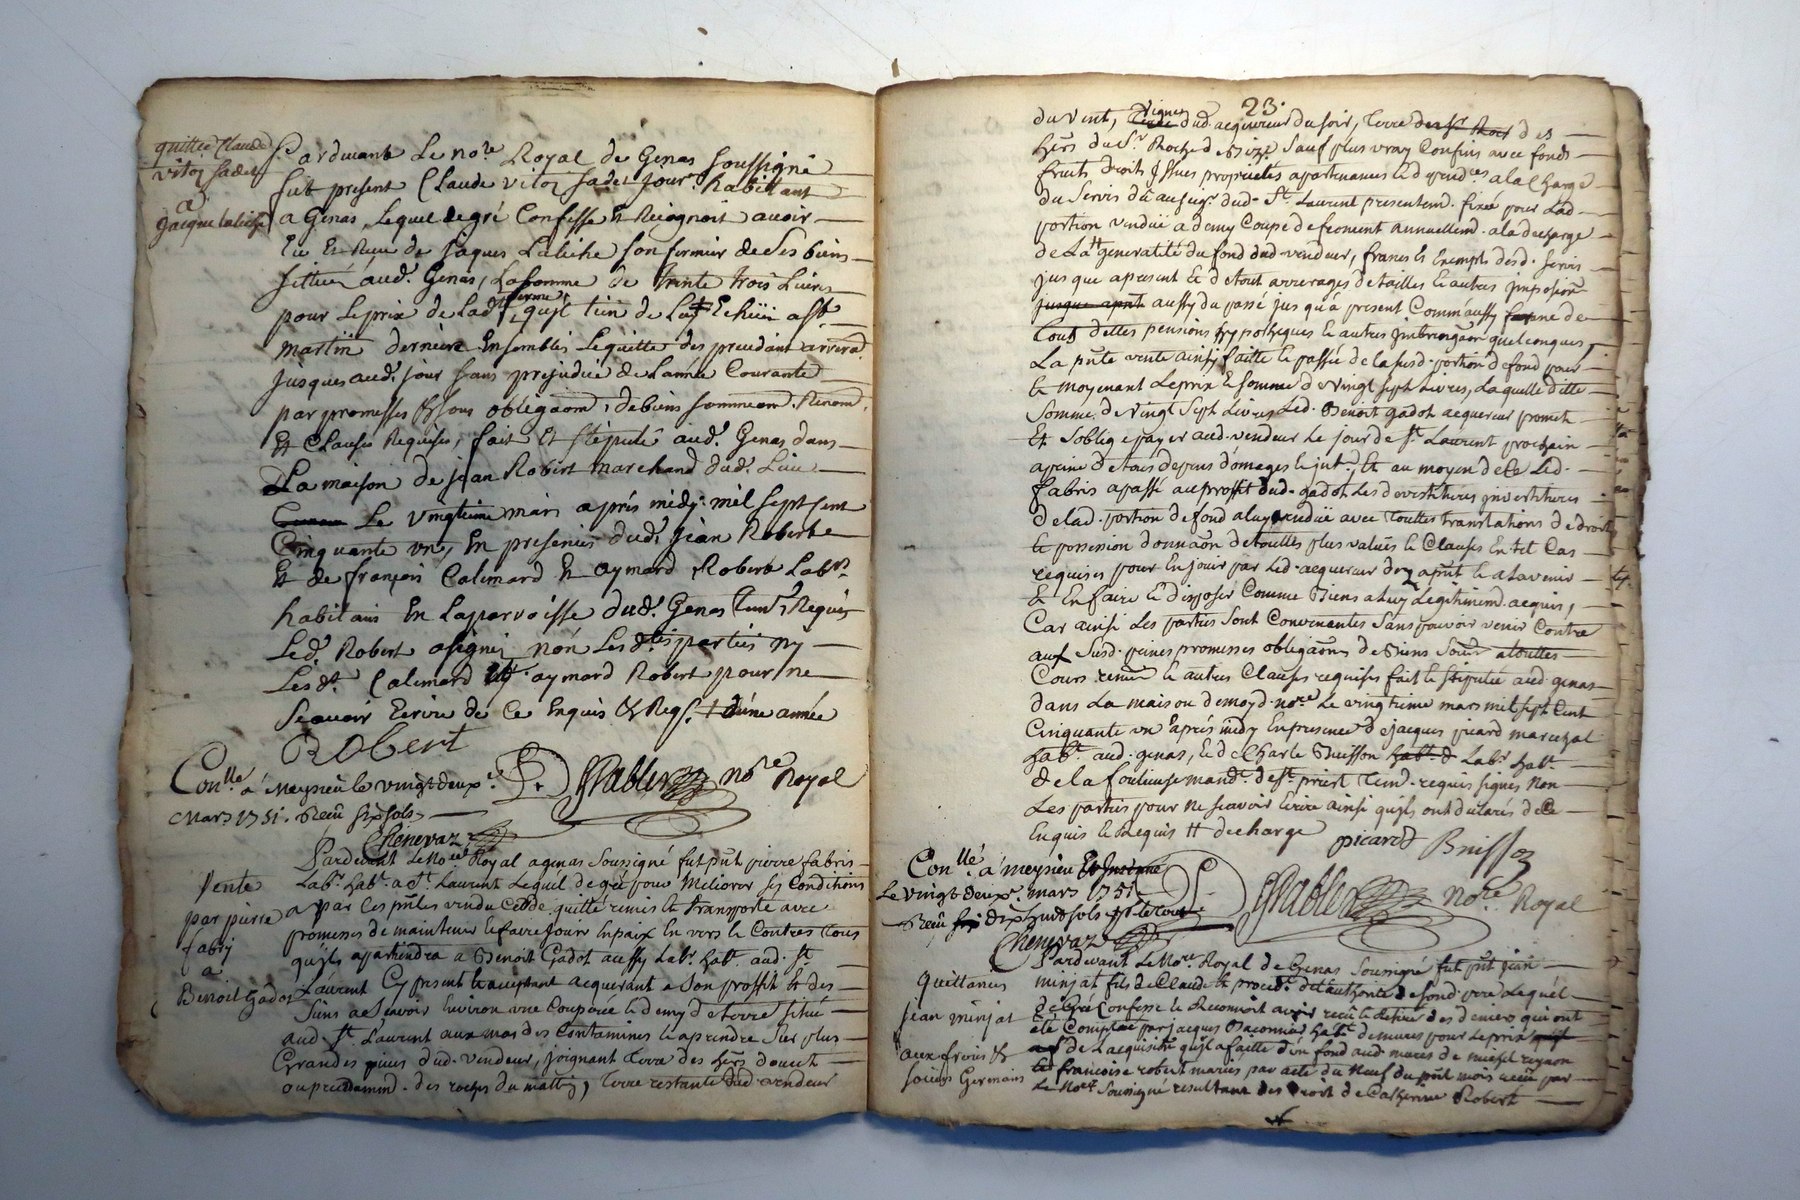 quittce Claude
vitoz sadet
a
Jacque labiche
Pardevant Le nore Royal de Genas soussigné
fut present Claude vitoz sadet jourr habittant
a Genas, Lequel de gré Confesse Et Reiognoit avoir
Eu Et Reçu de Jaques Labiche son fermier de ses biens
sittués aud. Genas, La somme de trente trois Livres
pour le prix de lad. ferme, qu'il tien de Luy Echüe a st.
martin derniere Ensembles Le quitte des precedant arrerad.
jusques aud. jour sans prejudice de L'année Courante
par promesses sous obligaom, de biens
Et Clauses Requises, fait Et stipulé aud. Genas dans
La maison de jean Robert marchand dud. Lieu
Le vingtieme mars aprés midy mil sept sent
Cinquante un, En presences dud. jean Robert
Et de françois Calimard Et aymard Robert Labrs
habitans En La parroisse dud. Genas Requis
Led. Robert a signé non Lesdtes parties ny
Lesdt. Calimard aymard Robert pour ne
Scavoir Ecrire de Ce Enquis Et Reqs. d'une année
Robert
Conlle à Meysieu le vingt deuxe
Mars 1751. Reçu six sols
nore Royal
Chenevaz
vente
par pierre
fabry
a
Benoit Gadot
Pardevant Le nore Royal a genas soussigné fut pnt pierre fabris
Labr. habt. a St. Laurent Lequel de gré pour Meliorer ses Conditions
a par Ces pntes vendu Cedé quitté remis et transporté avec
promesses de maintenir et faire jouir En paix En vers et Contres tous
qu'il appartiendra a Benoit Gadot aussy Labr. habt. aud. St.
Laurent Cy present et acceptant acquerant a Son proffit Et des
Siens a Scavoir Environ une Couperée et demy de terre Situé
aud. St. Laurent aux mas des Contamines a prendre Sur plus
Grandes pieces dud. vendeur, joignant terre des hers
ou precedamend. des roches du mattin, terre restante dud. vendeur
23.
du vent, vignes dud. acquereur du soir, terre des
hers du Sr. Roche de Bize Sauf plus vray Confins avec fonds
fruits droits issues proprietés apartenances et dependces a la Charge
du Servis dû au seigr. dud. St. Laurent presentem. fixée pour lad.
portion vendüe a demy Coupe de froment annuellem. a la decharge
de La generalité du fond dud. vendeur, francs Et Exempts desd. servis
jusque a present Et de tout arrerages de tailles et autres imposions
jusque aprnt aussy du passé jusqu'à present Comm'aussy de
touttes pensions hypotheques et autres quelconques,
La pnte vente ainsy faitte Et passée de la susd. portion de fond pour
Et moyenant Le prix Et somme de vingt sept Livres, Laquelle ditte
somme de vingt sept Livres Led. Benoit gadot acquereur promet
Et s'oblige payer aud. vendeur Le jour de St. Laurent prochain
a peine de tous depens domages Et Et au moyen de Ce Led.
fabris a passé au proffit dud. gadot Les devestitures investitures
de lad. portion de fond a luy vendüe avec touttes translations de droit
Et possession donnaon de touttes plus values Et Clauses En tel Cas
requises pour En jouir par Led. acquereur dez aprnt Et a Lavenir
Et En faire Et disposer Comme Biens a Luy Legitimem. acquis,
Car ainsi Les parties Sont Convenantes Sans pouvoir venir Contre
aux Susd. peines promesses obligaons de Biens a touttes
Cours et autres Clauses requises fait Et stipulée aud. genas
dans La maison de moyd. nore Le vingtieme mars mil sept Cent
Cinquante un aprés midy En presence de jacques picard marechal
habt. aud. genas, Et de Charle Buisson Labr. habt.
de la fouleuse mandt. de St. priest requis signés Non
Les parties pour Ne Scavoir Ecrire ainsi qu'ils ont declarés de Ce
Enquis Et Requis # decharge
picard Buisson
Conllé à meysieu
Le vingt deuxe. mars 1751
Reçu dix huit sols
nore Royal
Chenevaz
quittances
jean minjat
aux freres &
soeurs Germains
Pardevant Le Nore Royal de Genas Soussigné fut pnt jean
minjat fils de Claude Et proced. de L'authorité de sond. pere Lequel
de gré Confesse Et Reconnoit avoir reçu et retiré des deniers qui ont
été Comptés par jacques habt. de mures pour Le prix
de L'acquisition qu'il a faitte d'un fond aud. mures de michel
Et francoise robert mariés par acte du Neuf du pnt mois reçu par
Le Nore Soussigné resultant des droit de Catherine Robert